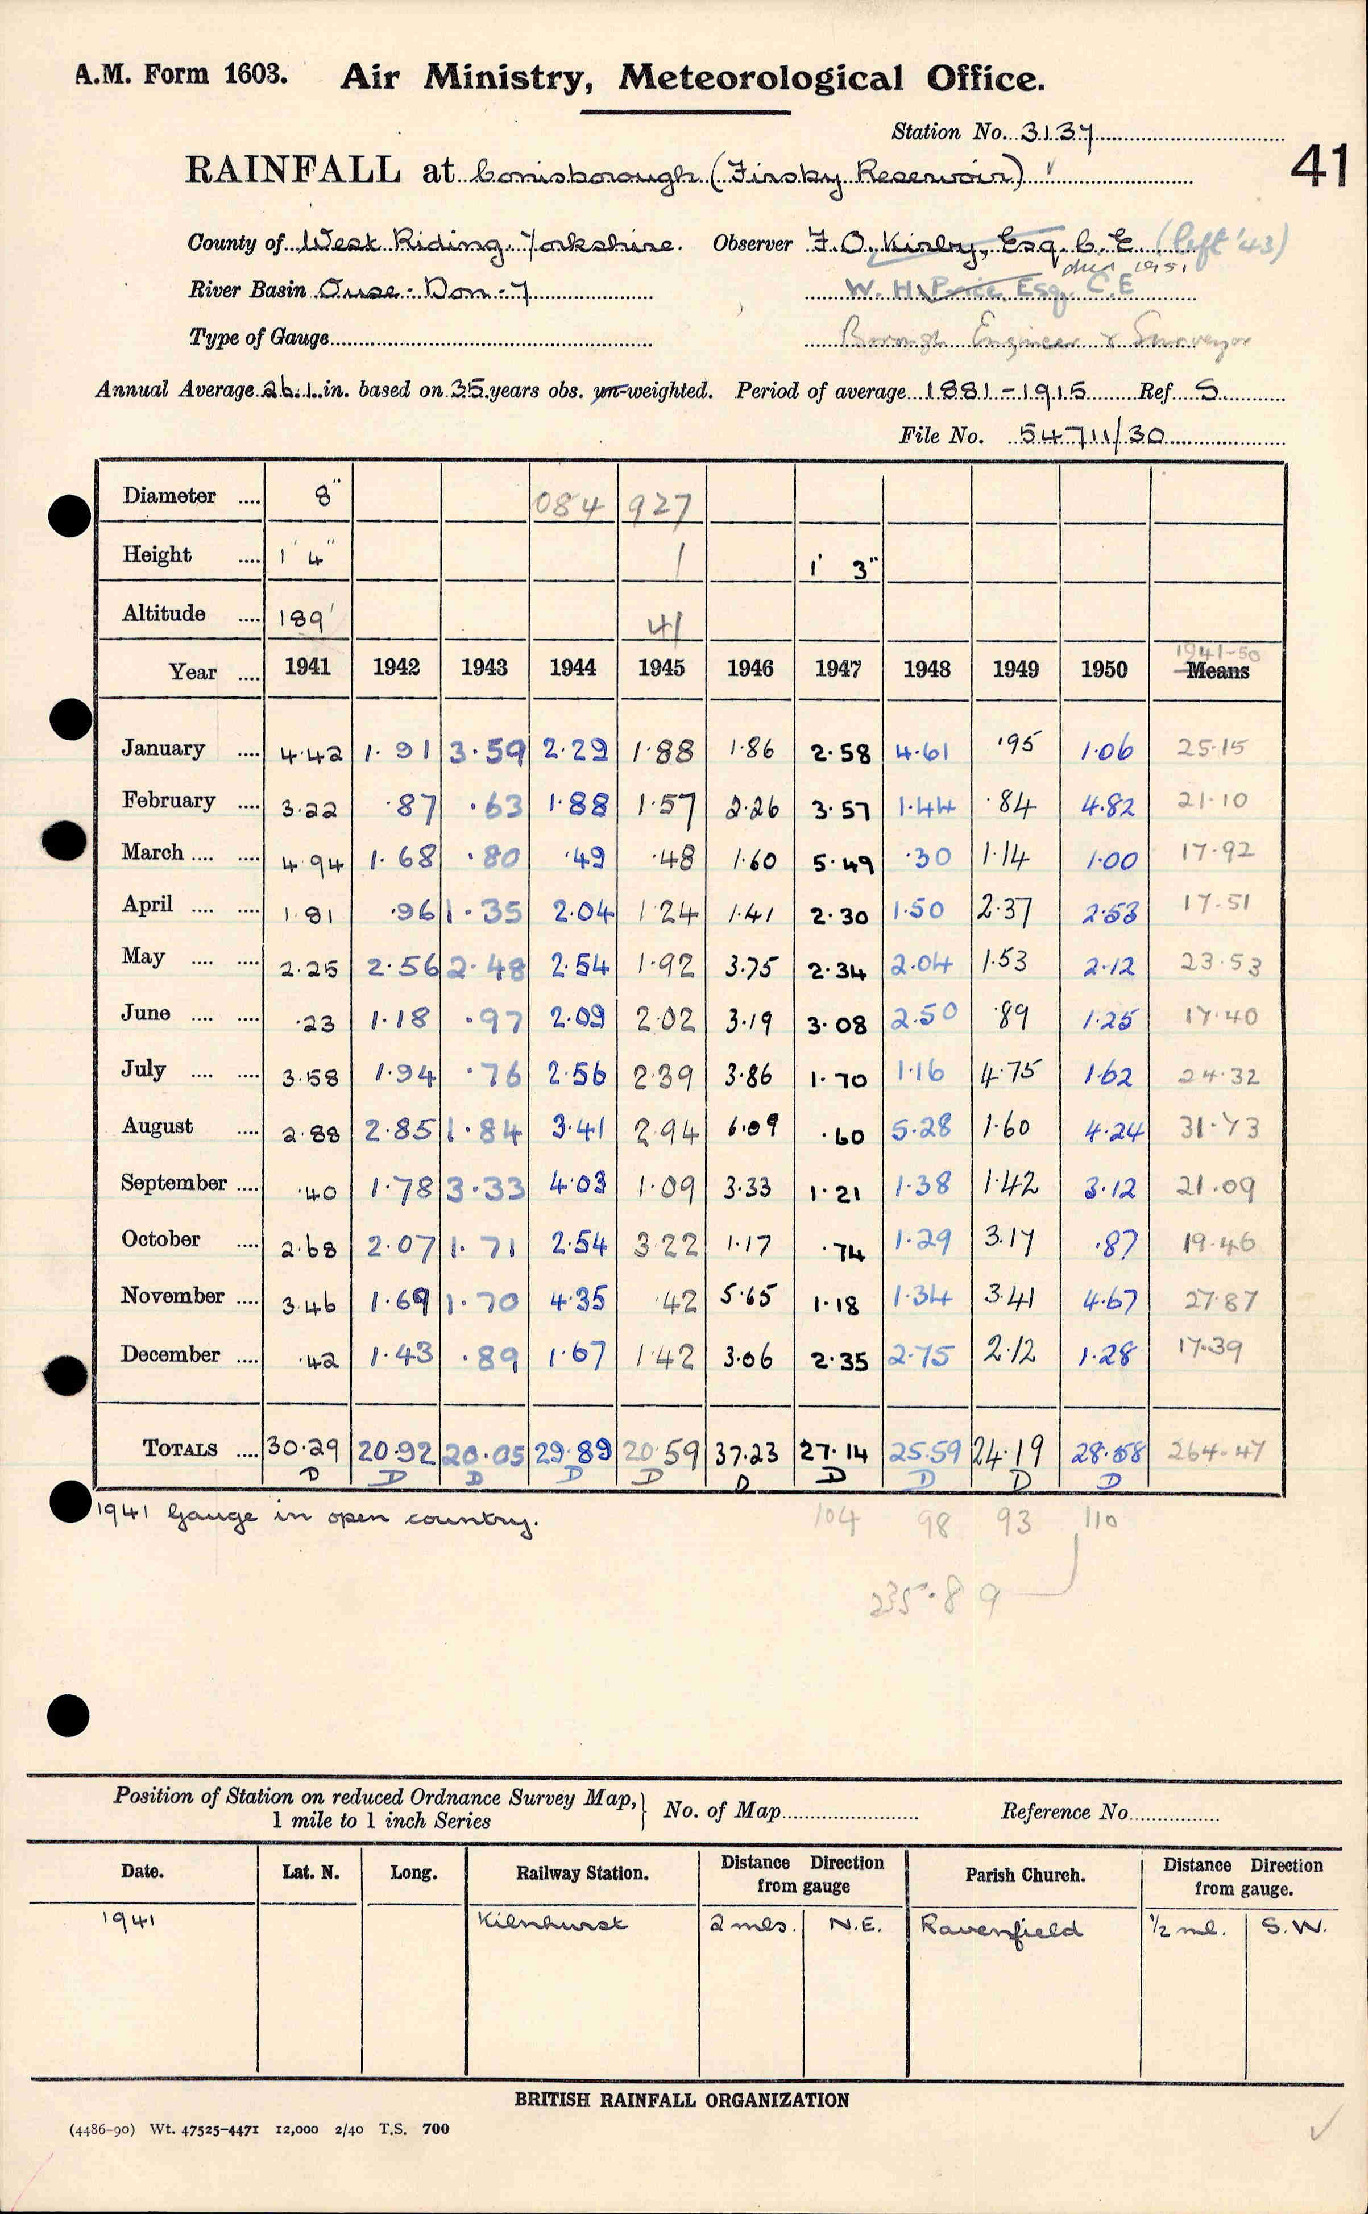 A.M. Form 1603. Air Ministry, Meteorological Office.
Station No. 3137
41
RAINFALL at Conisborough (Firsby Reservoir)
County of West Riding, Yorkshire. Observer F. O. Kirby, Esq. C. E (left '43)
1951
River Basin Ouse - Don - 7 W. H. Price Esq. C.E
Type of Gauge Borough Engineer & Surveyor
Annual Average 26.1 in. based on 35 years obs. un-weighted. Period of average 1881-1915 Ref S
File No. 54711/30
Diameter .... 8" 084 927
Height .... 1' 4" 1 1' 3"
Altitude .... 189' 41
1941-50
Year .... 1941 1942 1943 1944 1945 1946 1947 1948 1949 1950 Means
January .... 4.42 1.91 3.59 2.29 1.88 1.86 2.58 4.61 .95 1.06 25.15
February .... 3.22 .87 .63 1.88 1.57 2.26 3.57 1.44 .84 4.82 21.10
March .... .... 4.94 1.68 .80 .49 .48 1.60 5.49 .30 1.14 1.00 17.92
April .... .... 1.81 .96 1.35 2.04 1.24 1.41 2.30 1.50 2.37 2.53 17.51
May .... .... 2.25 2.56 2.48 2.54 1.92 3.75 2.34 2.04 1.53 2.12 23.53
June .... .... .23 1.18 .97 2.09 2.02 3.19 3.08 2.50 .89 1.25 17.40
July .... .... 3.58 1.94 .76 2.56 2.39 3.86 1.70 1.16 4.75 1.62 24.32
August .... 2.88 2.85 1.84 3.41 2.94 6.09 .60 5.28 1.60 4.24 31.73
September .... .40 1.78 3.33 4.03 1.09 3.33 1.21 1.38 1.42 3.12 21.09
October .... 2.68 2.07 1.71 2.54 3.22 1.17 .74 1.29 3.17 .87 19.46
November .... 3.46 1.69 1.70 4.35 .42 5.65 1.18 1.34 3.41 4.67 27.87
December .... .42 1.43 .89 1.67 1.42 3.06 2.35 2.75 2.12 1.28 17.39
TOTALS .... 30.29 20.92 20.05 29.89 20.59 37.23 27.14 25.59 24.19 28.58 264.47
D D D D D D D D D D
1941 Gauge in open country. 104 98 93 110
235.89
Position of Station on reduced Ordnance Survey Map, No. of Map Reference No.
1 mile to 1 inch Series
Date. Lat. N. Long. Railway Station. Distance Direction from gauge Parish Church. Distance Direction from gauge.
1941 Kilnhurst 2 mls. N.E. Ravenfield ½ ml. S.W.
BRITISH RAINFALL ORGANIZATION
(4486-90) Wt. 47525-4471 12,000 2/40 T.S. 700